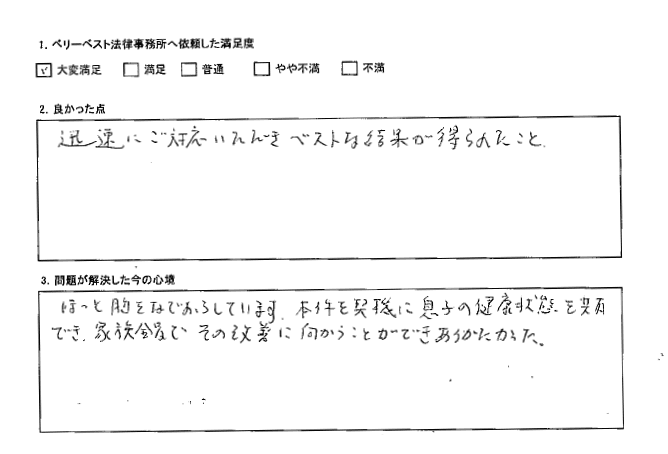 1. ベリーベスト法律事務所へ依頼した満足度
☑ 大変満足 □ 満足 □ 普通 □ やや不満 □ 不満
2. 良かった点
迅速にご対応いただき ベストな結果が得られたこと.
3. 問題が解決した今の心境
ほっと胸をなでおろしています. 本件を契機に息子の健康状態を共有
でき. 家族全員で その改善に向かうことができありがたかった。